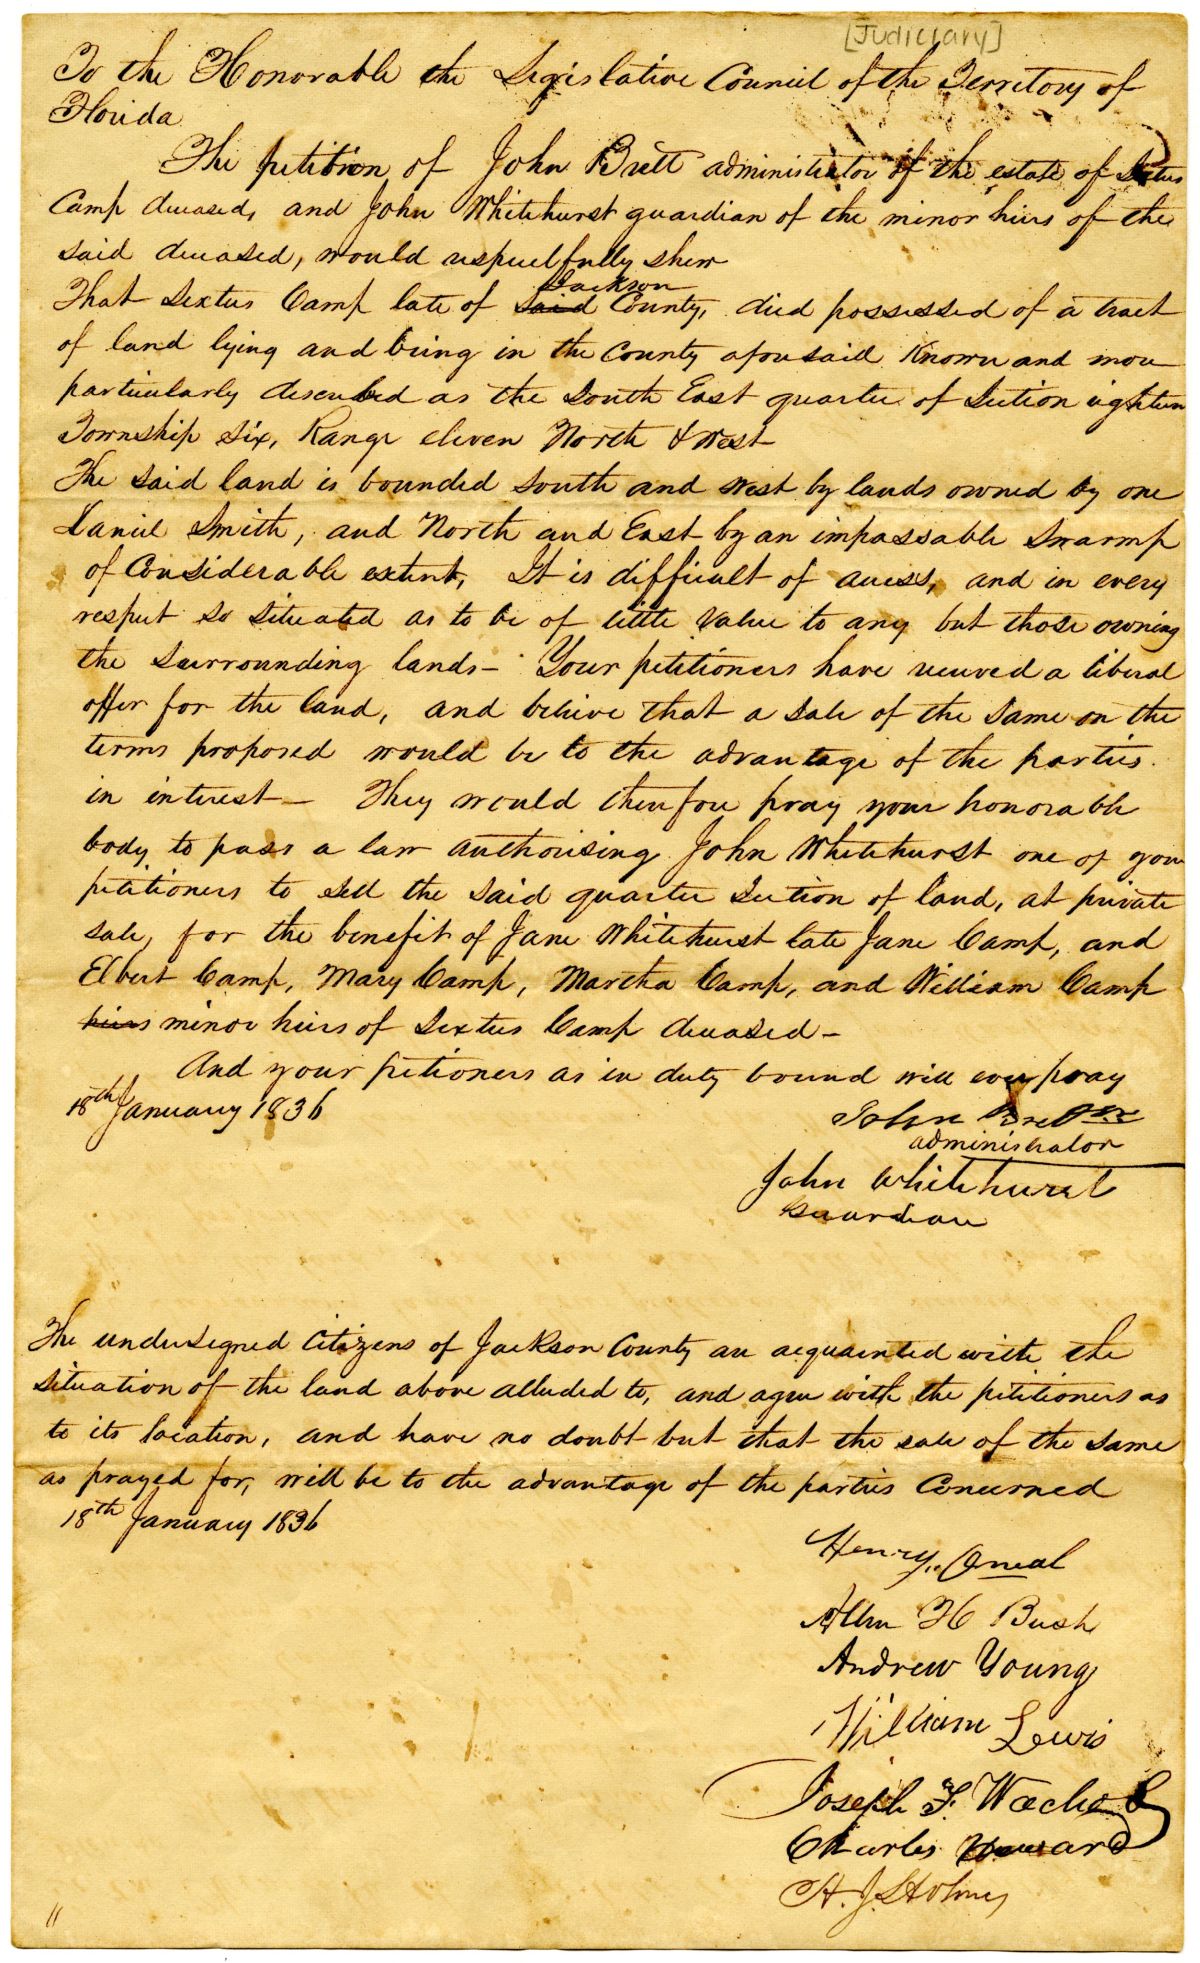 [Judiciary]
To the Honorable the Legislative Council of the Territory of
Florida
The petition of John Brett administrator of the estate of Sextus
Camp deceased, and John Whitehurst guardian of the minor heirs of the
said deceased, would respectfully shew
That Sextus Camp late of said Jackson County, died possessed of a tract
of land lying and being in the County aforesaid Known and more
particularly described as the South East quarter of Section eighteen
Township six, Range eleven North & West
The said land is bounded south and west by lands owned by one
Daniel Smith, and North and East by an impassable Swamp
of Considerable extent, It is difficult of access, and in every
respect so situated as to be of little value to any but those owning
the surrounding lands - Your petitioners have received a liberal
offer for the land, and believe that a sale of the same on the
terms proposed would be to the advantage of the parties
in interest - They would therefore pray your honorable
body to pass a law authorising John Whitehurst one of your
petitioners to sell the said quarter section of land, at private
sale, for the benefit of Jane Whitehurst late Jane Camp, and
Elbert Camp, Mary Camp, Martha Camp, and William Camp
heirs minor heirs of Sextus Camp deceased -
And your petioners as in duty bound will ever pray
18th January 1836
John Brett
administrator
John Whitehurst
Guardian
The undersigned Citizens of Jackson County are acquainted with the
situation of the land above alluded to, and agree with the petitioners as
to its location, and have no doubt but that the sale of the same
as prayed for, will be to the advantage of the parties Concerned
18th January 1836
Henry Oneal
Allen H Bush
Andrew Young
William Lewis
Joseph F.
Charles
H. J. Holmes
11